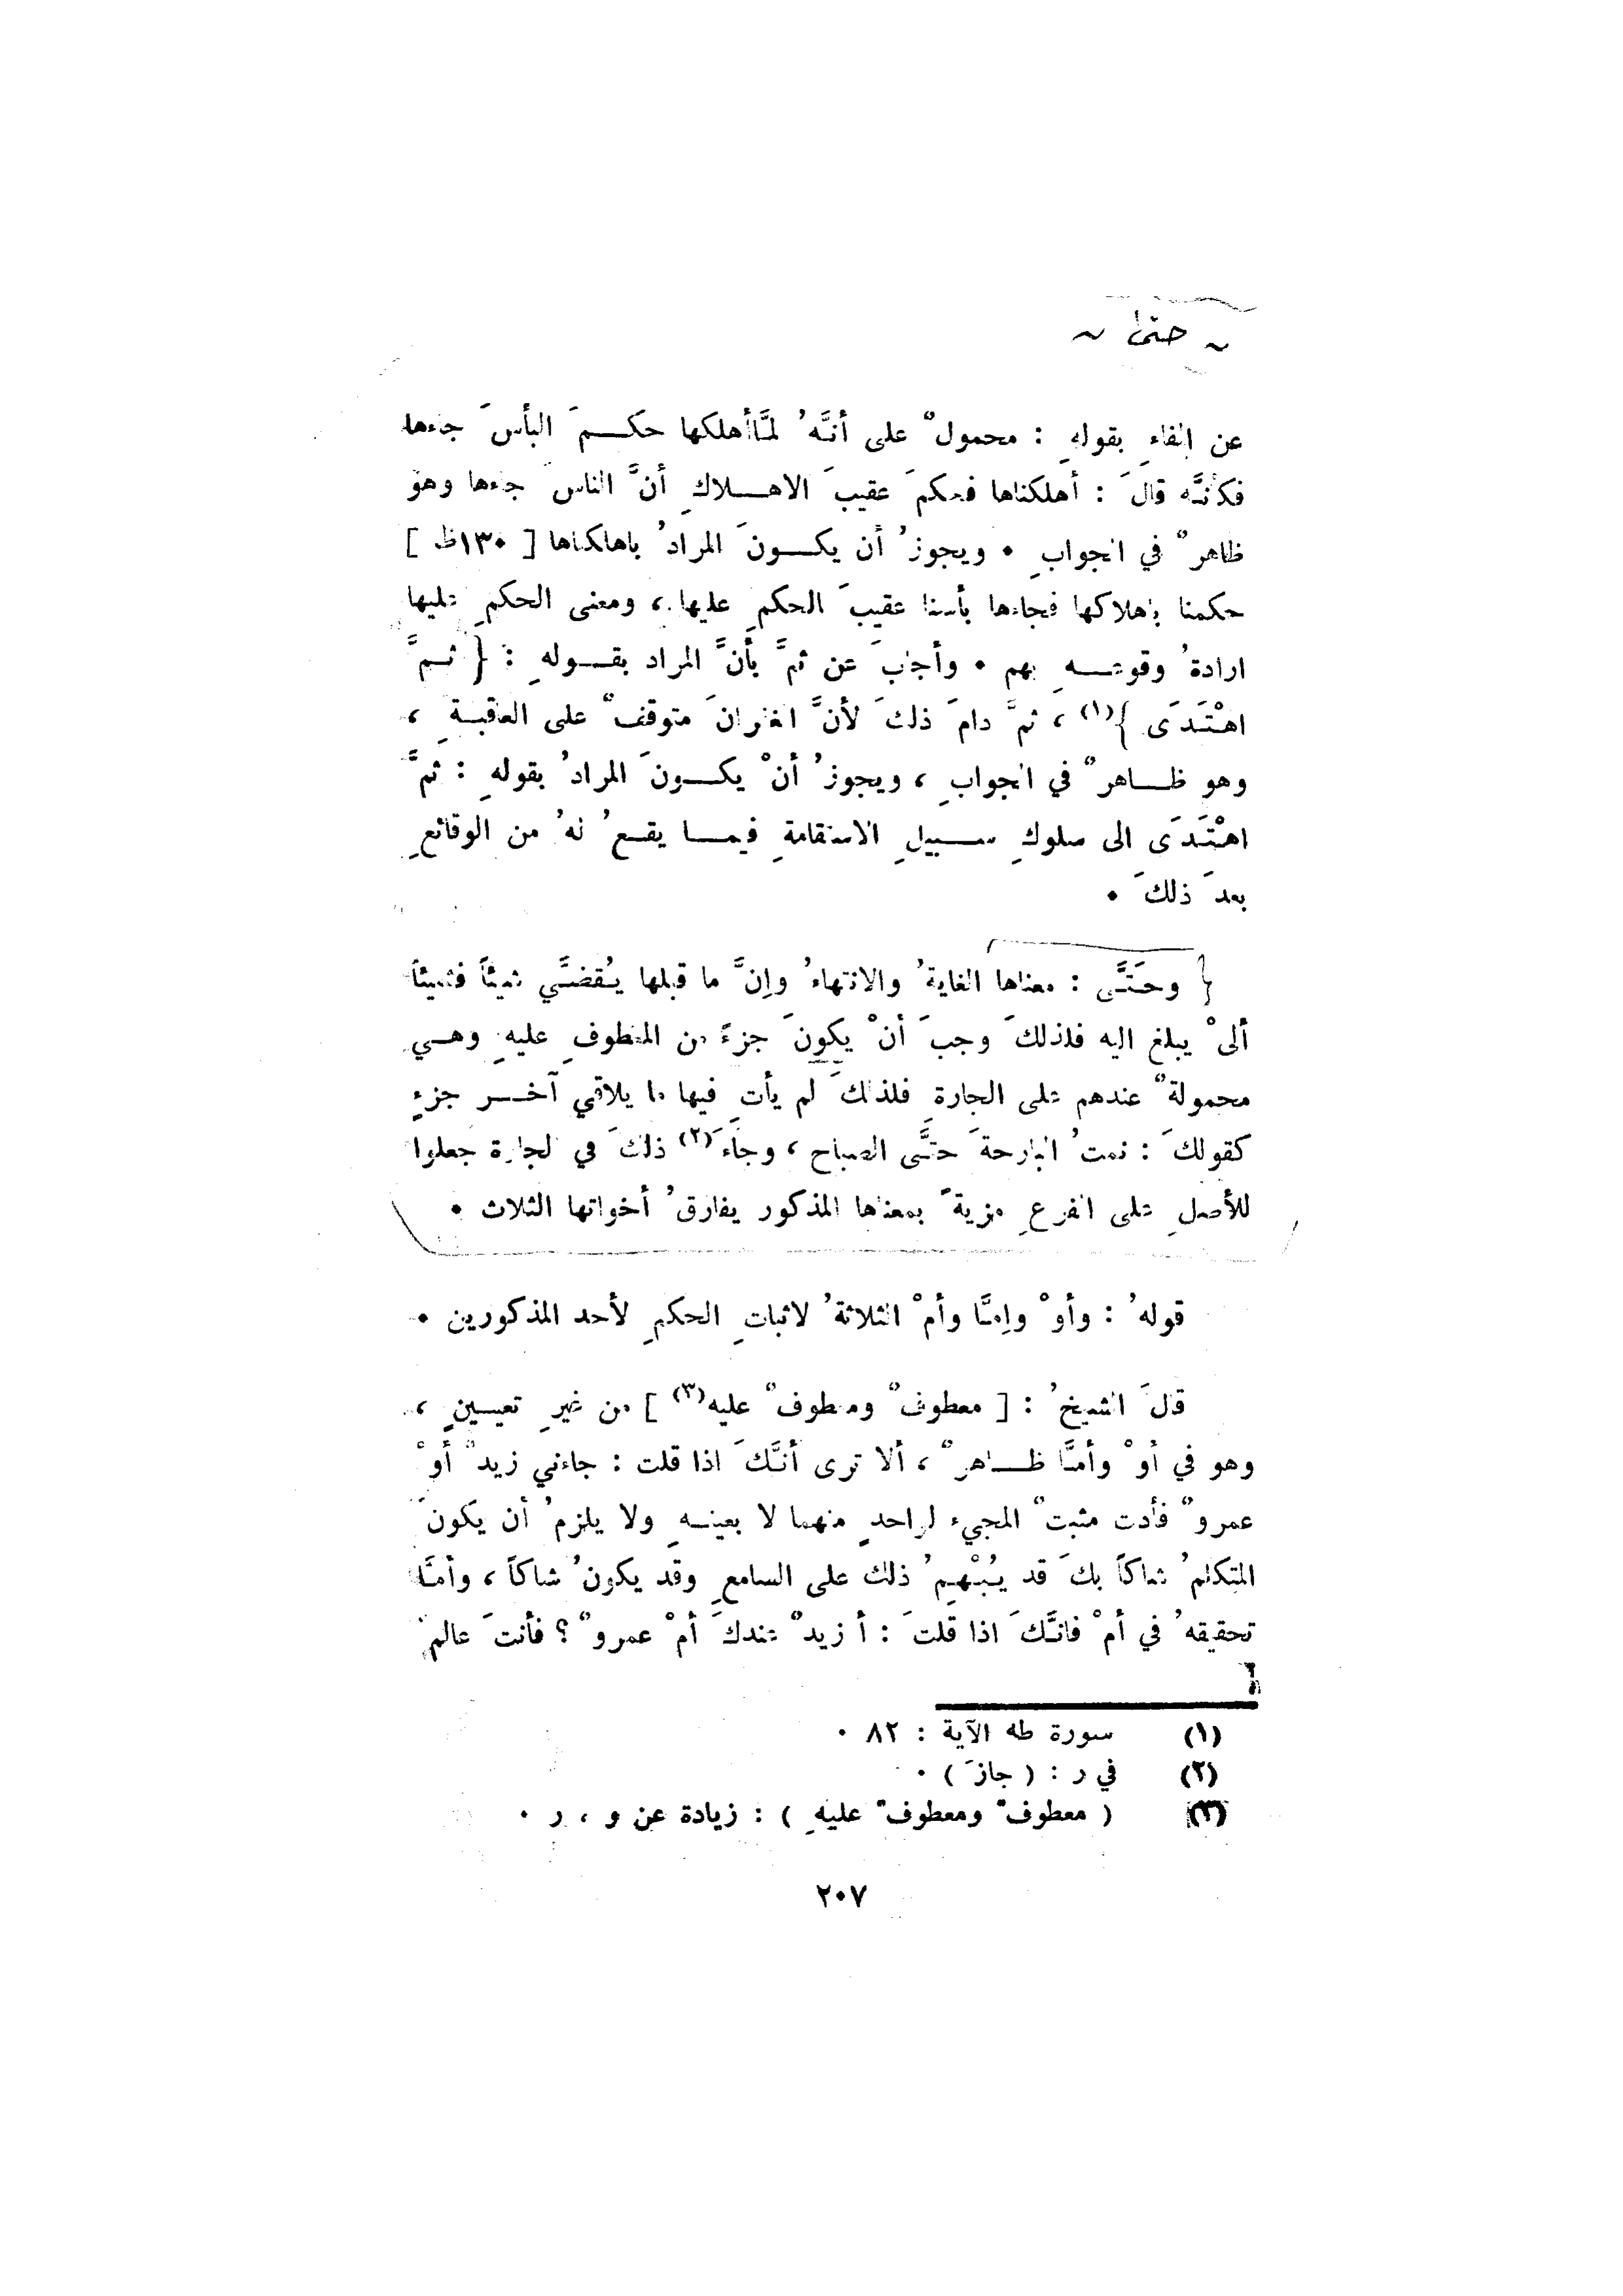 ~ حتى ~
عن الفاءِ بقولهِ : محمولٌ على أنَّهُ لمَّاأهلكها حكمَ البأسَ جاءها
فكأنَّه قالَ : أهلكناها فحكمَ عقيبَ الاهلاكِ أنَّ الناسَ جاءها وهو
ظاهرٌ في الجوابِ ٠ ويجوزُ أن يكونَ المرادُ باهلكناها [ ١٣٠ظ ]
حكمنا باهلاكها فجاءها بأسنا عقيبَ الحكمِ عليها ، ومعنى الحكمِ عليها
ارادةُ وقوعهِ بهم ٠ وأجابَ عن ثمَّ بأنَّ المراد بقولهِ : { ثمَّ
اهْتَدَى }(١) ، ثمَّ دامَ ذلكَ لأنَّ الغفرانَ متوقفٌ على العاقبةِ ،
وهو ظاهرٌ في الجوابِ ، ويجوزُ أنْ يكونَ المرادُ بقولهِ : ثمَّ
اهْتَدَى الى سلوكِ سبيلِ الاستقامةِ فيما يقعُ لهُ من الوقائعِ
بعدَ ذلكَ ٠
{ وحَتَّى : معناها الغايةُ والانتهاءُ وإنَّ ما قبلها يُقضَّي شيئاً فشيئاً
ألىْ يبلغ اليه فلذلكَ وجبَ أنْ يكونَ جزءً من المعطوفِ عليهِ وهي
محمولةٌ عندهم على الجارةِ فلذلكَ لم يأتِ فيها ما يلاقي آخر جزءٍ
كقولكَ : نمتُ البارحةَ حتَّى الصباح ، وجاءَ(٢) ذلكَ في الجارة جعلوا
للأصلِ على الفرعِ مزيةً بمعناها المذكور يفارقُ أخواتها الثلاث ٠
قولهُ : وأوْ وإمَّا وأمْ الثلاثةُ لاثباتِ الحكمِ لأحد المذكورين ٠
قالَ الشيخُ : [ معطوفٌ ومعطوفٌ عليه(٣) ] من غيرِ تعيينٍ ،
وهو في أوْ وأمَّا ظاهرٌ ، ألا ترى أنَّكَ اذا قلت : جاءني زيدٌ أوْ
عمروٌ فأنت مثبتٌ المجيء لواحدٍ منهما لا بعينهِ ولا يلزمُ أن يكونَ
المتكلمُ شاكاً بكَ قد يُبْهِمُ ذلك على السامعِ وقد يكونُ شاكاً ، وأمَّا
تحقيقهُ في أمْ فانَّكَ اذا قلتَ : أ زيدٌ عندكَ أمْ عمروٌ ؟ فأنتَ عالمٌ
(١) سورة طه الآية : ٨٢ ٠
(٢) في ر : ( جازَ ) ٠
(٣) ( معطوفٌ ومعطوفٌ عليهِ ) : زيادة عن و ، ر ٠
٢٠٧